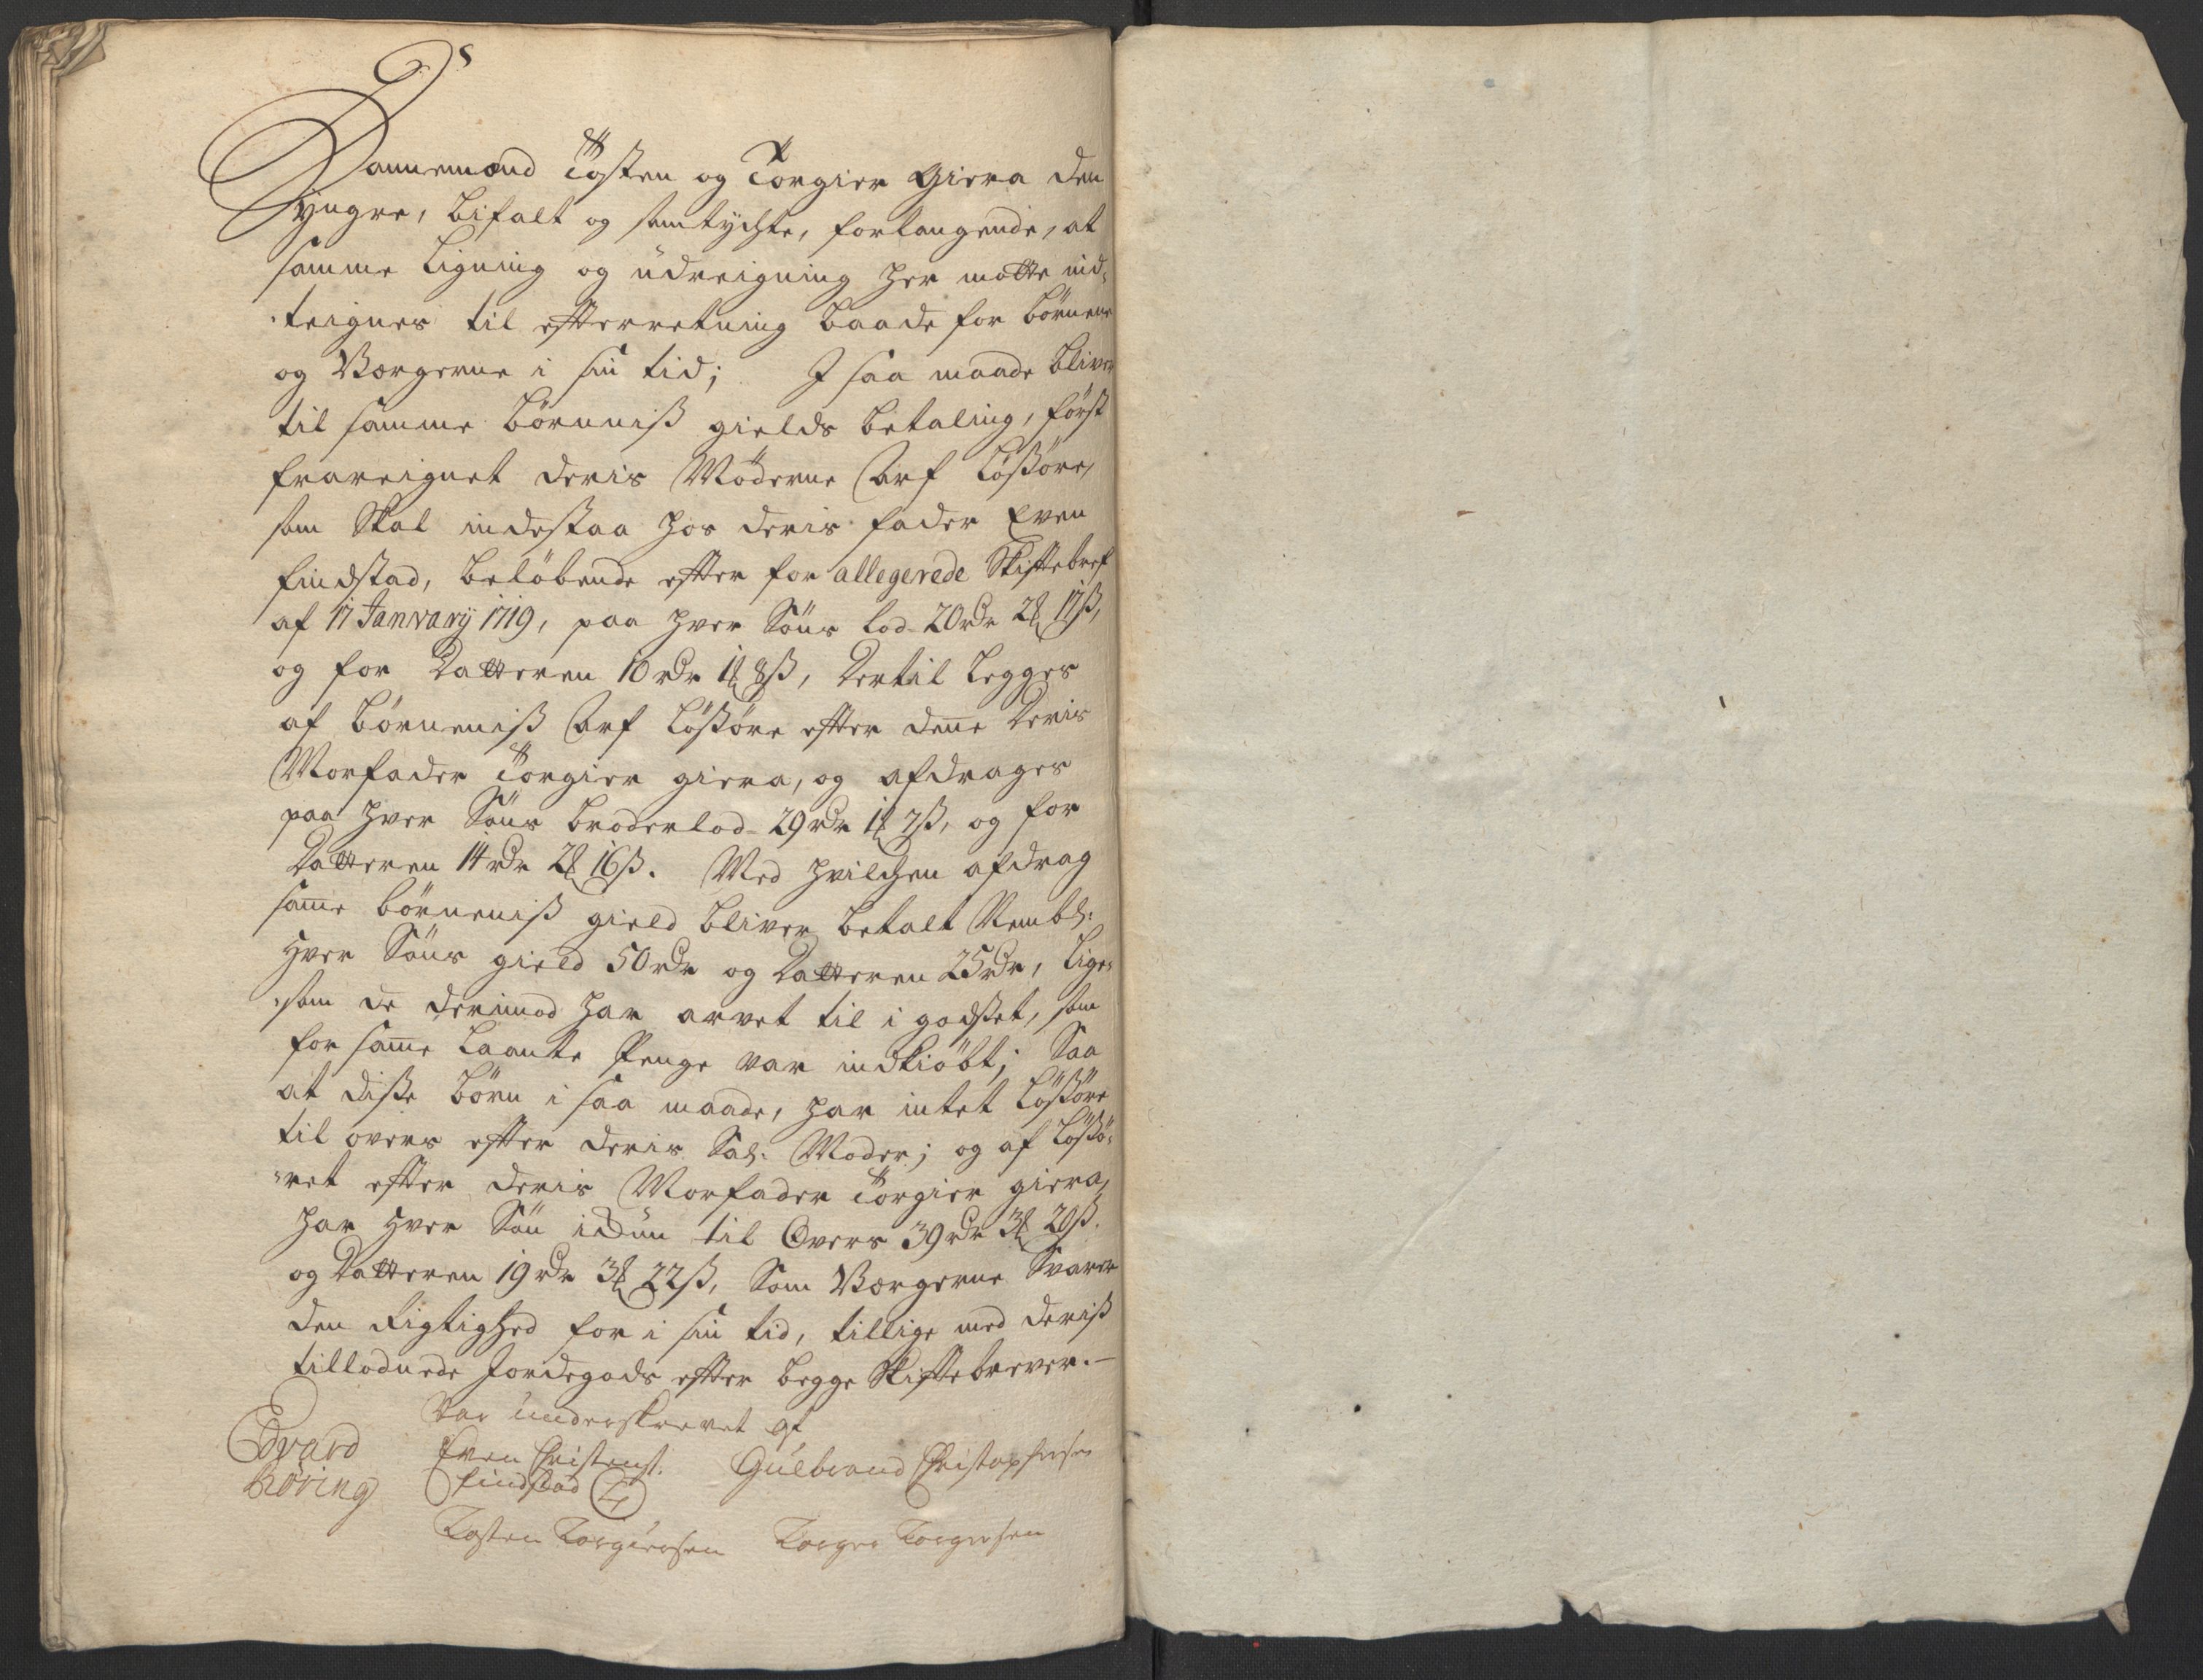 Dannemænd Tosten og Torgier Giera den
yngre, bifalt og samtychte, forlangende, at
samme Ligning og Udreigning her motte ind¬
teignes til efterretning baade for Børnene
og Værgerne i sin tid; I saa maade bliver
til samme børnniß gields betaling, først
frareignet deris Møderne Arf Løßøre,
som Skal indestaa hos deris fader Even
findstad, beløbende efter for allegerede Skiftebref
af 17 January 1719, paa hver Søns lod 20 rdr 2 ₰ 17 ß,
og for Datteren 10 rdr 1 ₰ 8 ß, Dertil Legges
af børneniß Arf Løßøre efter deñe Deris
Morfader Torgier giera, og afdrages
paa hver Søns broderlod 29 rdr 1 ₰ 7 ß, og for
Datteren 14 rdr 2 ₰ 16 ß. Med hvilchen afdrag
sam̄e børneniß gield bliver betalt Nembl:
hver Søns gield 50 rdr og Datteren 25 rdr, Lige¬
som de derimod har arvet til i godset, som
for sam̄e Laante Penge var indkiøbt; Saa
at diße børn i saa maade, har intet Løßøre
til overs efter deris Sal: Moder; og af Løßø¬
ret efter deris Morfader Torgier giera,
har hver Søn igien til Overs 39 rdr 3 ₰ 20 ß.
og Datteren 19 rdr 3 ₰ 22 ß, Som Værgerne Svarer
den Rigtighed for i sin tid, tillige med deriß
tillodnede Jordegods efter begge Skiftebrever.—
Var underskrevet af
Edvard Even Christens: Gulbrand Christophersen
Røring findstad
Tosten Torgiersen Torger Torgersen